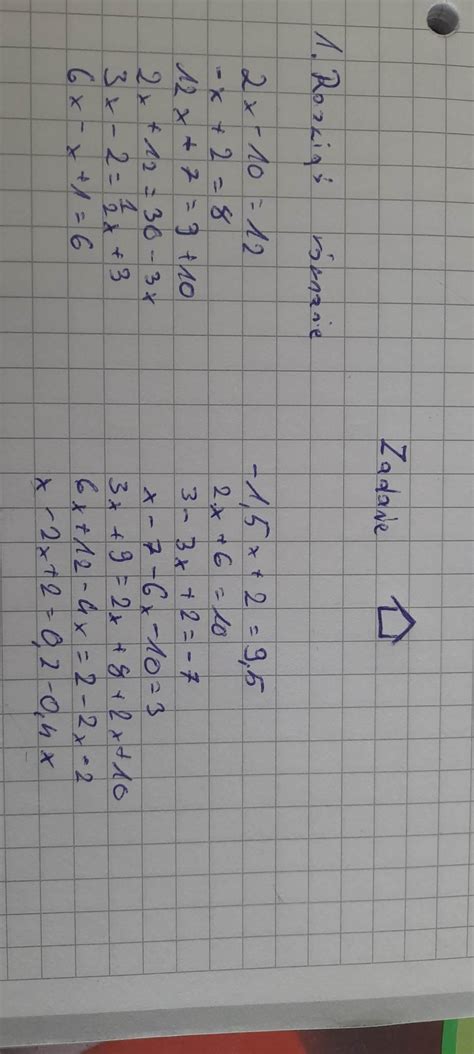 Zadanie
1. Rozwiąż równanie
2x - 10 = 12
-x + 2 = 8
12x + 7 = 9 + 10
2x + 12 = 36 - 3x
3x - 2 = 1/2x + 3
6x - x + 1 = 6
-1,5x + 2 = 9,5
2x + 6 = 10
3 - 3x + 2 = -7
x - 7 - 6x - 10 = 3
3x + 9 = 2x + 8 + 2x + 10
6x + 12 - 4x = 2 - 2x - 2
x - 2x + 2 = 0,2 - 0,4x